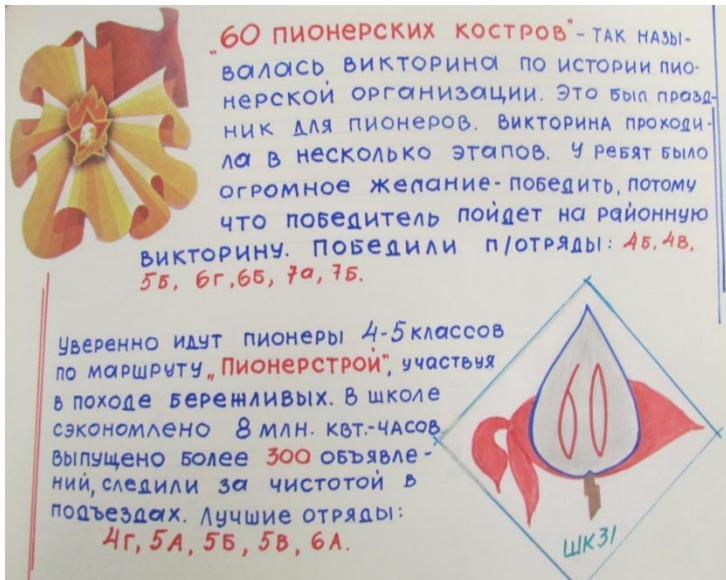 „60 ПИОНЕРСКИХ КОСТРОВ" - ТАК НАЗЫ-
ВАЛАСЬ ВИКТОРИНА ПО ИСТОРИИ ПИО-
НЕРСКОЙ ОРГАНИЗАЦИИ. ЭТО БЫЛ ПРАЗД-
НИК ДЛЯ ПИОНЕРОВ. ВИКТОРИНА ПРОХОДИ-
ЛА В НЕСКОЛЬКО ЭТАПОВ. У РЕБЯТ БЫЛО
ОГРОМНОЕ ЖЕЛАНИЕ - ПОБЕДИТЬ, ПОТОМУ
ЧТО ПОБЕДИТЕЛЬ ПОЙДЕТ НА РАЙОННУЮ
ВИКТОРИНУ. ПОБЕДИЛИ П/ОТРЯДЫ: 4Б, 4В,
5Б, 6Г, 6Б, 7а, 7Б.
УВЕРЕННО ИДУТ ПИОНЕРЫ 4-5 КЛАССОВ
ПО МАРШРУТУ „ПИОНЕРСТРОЙ", УЧАСТВУЯ
В ПОХОДЕ БЕРЕЖЛИВЫХ. В ШКОЛЕ
СЭКОНОМЛЕНО 8 МЛН. КВТ.-ЧАСОВ
ВЫПУЩЕНО БОЛЕЕ 300 ОБЪЯВЛЕ-
НИЙ, СЛЕДИЛИ ЗА ЧИСТОТОЙ В
ПОДЪЕЗДАХ. ЛУЧШИЕ ОТРЯДЫ:
4Г, 5А, 5Б, 5В, 6А.
60
ШК31